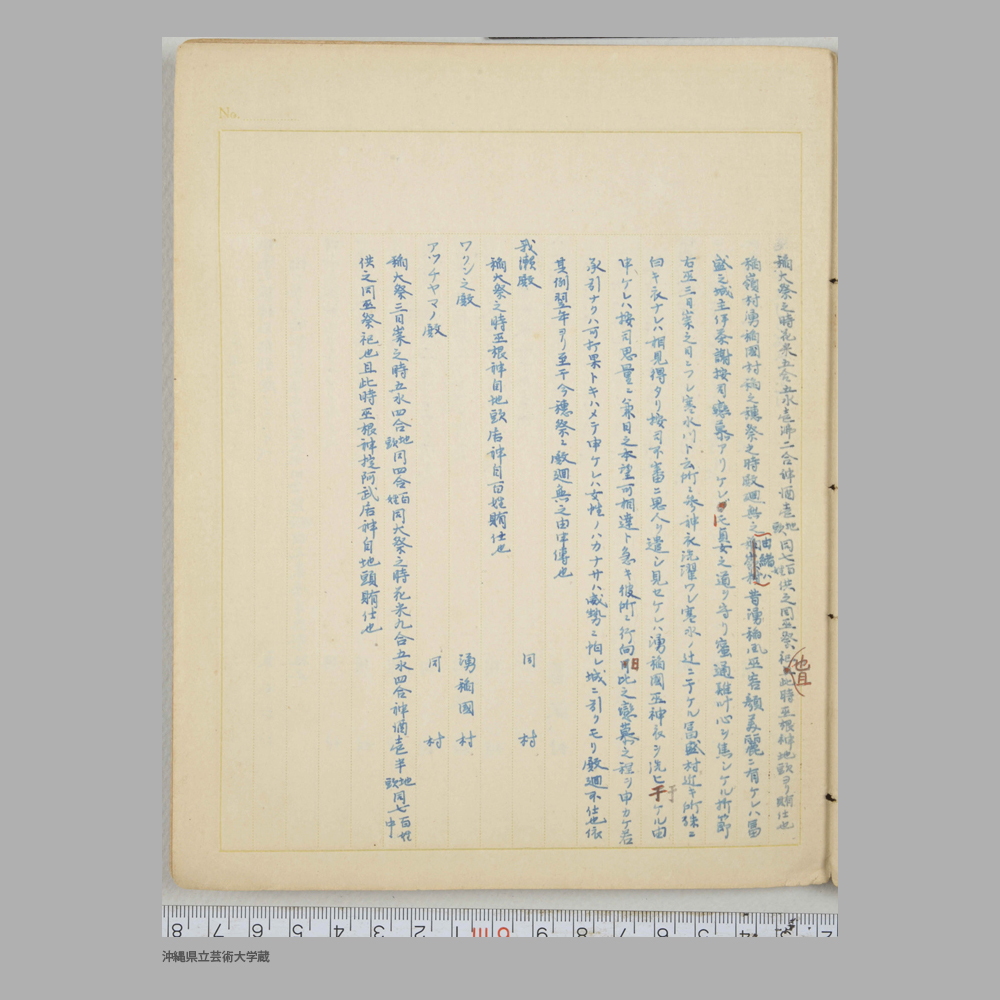 No.
稲大祭之時花米五合五水壱沸二合神酒壱地頭同七百姓供之同巫祭祀也且此時巫根神地頭ヨリ賄仕也
稲嶺村湧稲國村稲之穂祭之時殿廻無之由緒ハ昔湧稲國巫容顔美麗ニ有ケレハ冨
盛之城主伊豢謝按司恋慕アリケレトモ貞女之道ヲ守リ蜜通難叶心ヲ焦シケル折節
右巫三日崇之目ニフレ寒水川ト云所ニ参神衣洗濯ワレ寒水ノ辻ニテケル冨盛村近キ所殊ニ
白キ衣ナレハ相見得タリ按司不審ニ思人ヲ遣シ見セケレハ湧稲國巫神衣ヲ洗ヒ干ケル由
申ケレハ按司思量ニ兼日之本望可相達ト急キ彼所ニ行向日比之恋慕之程ヲ申カケ若
承引ナクハ可打果トキハメテ申ケレハ女性ノハカナサハ威勢ニ怕レ城ニ引クモリ殿廻不仕也依
其例翌年ヨリ至于今穂祭ニ殿廻無之由申傳也
我瀬殿 同村
稲大祭之時巫根神自地頭居神自百姓賄仕也
ワクシ之殿 湧稲國村
アツチヤマノ殿 同村
稲大祭三日崇之時五水四合地頭同四合百姓同大祭之時花米九合五水四合神酒壱半地頭同七百姓中
供之同巫祭祀也且此時巫根神掟阿武居神自地頭賄仕也
8 7 6 5 4 3 2 1 cm 9 8 7 6 5 4 3 2
沖縄県立芸術大学蔵